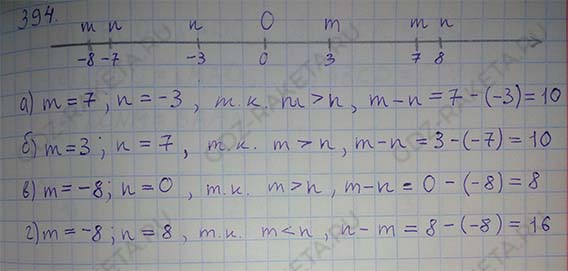 394.
m n n 0 m m n
-8 -7 -3 0 3 7 8
а) m = 7, n = -3, т.к. m > n, m - n = 7 - (-3) = 10
б) m = 3; n = 7, т.к. m > n, m - n = 3 - (-7) = 10
в) m = -8; n = 0, т.к. m > n, m - n = 0 - (-8) = 8
г) m = -8; n = 8, т.к. m < n, n - m = 8 - (-8) = 16
GDZ-RAKETA.RU